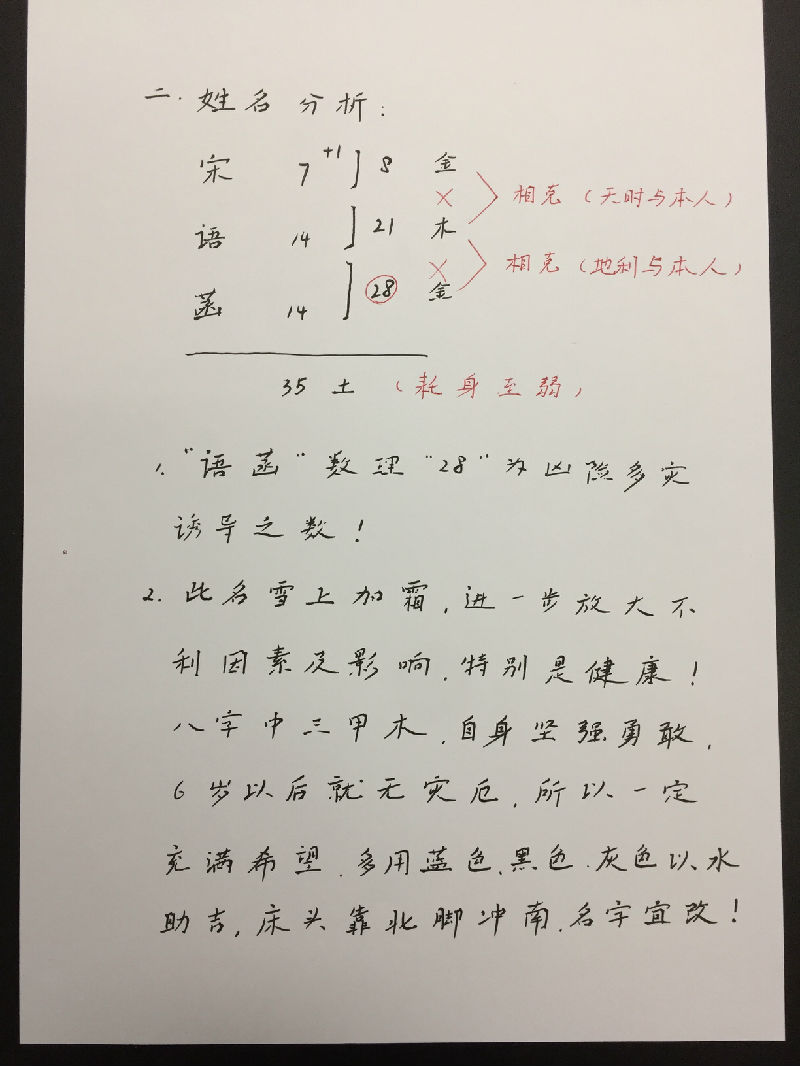 二.姓名分析:
宋 7 +1 ] 8 金
× 相克(天时与本人)
语 14 ] 21 木
× 相克(地利与本人)
菡 14 ] 28 金
35 土 (耗身至弱)
1."语菡"数理"28"为凶险多灾
诱导之数!
2.此名雪上加霜,进一步放大不
利因素及影响,特别是健康!
八字中三甲木,自身坚强勇敢,
6岁以后就无灾厄,所以一定
充满希望.多用蓝色、黑色.灰色以水
助吉,床头靠北脚冲南,名字宜改!